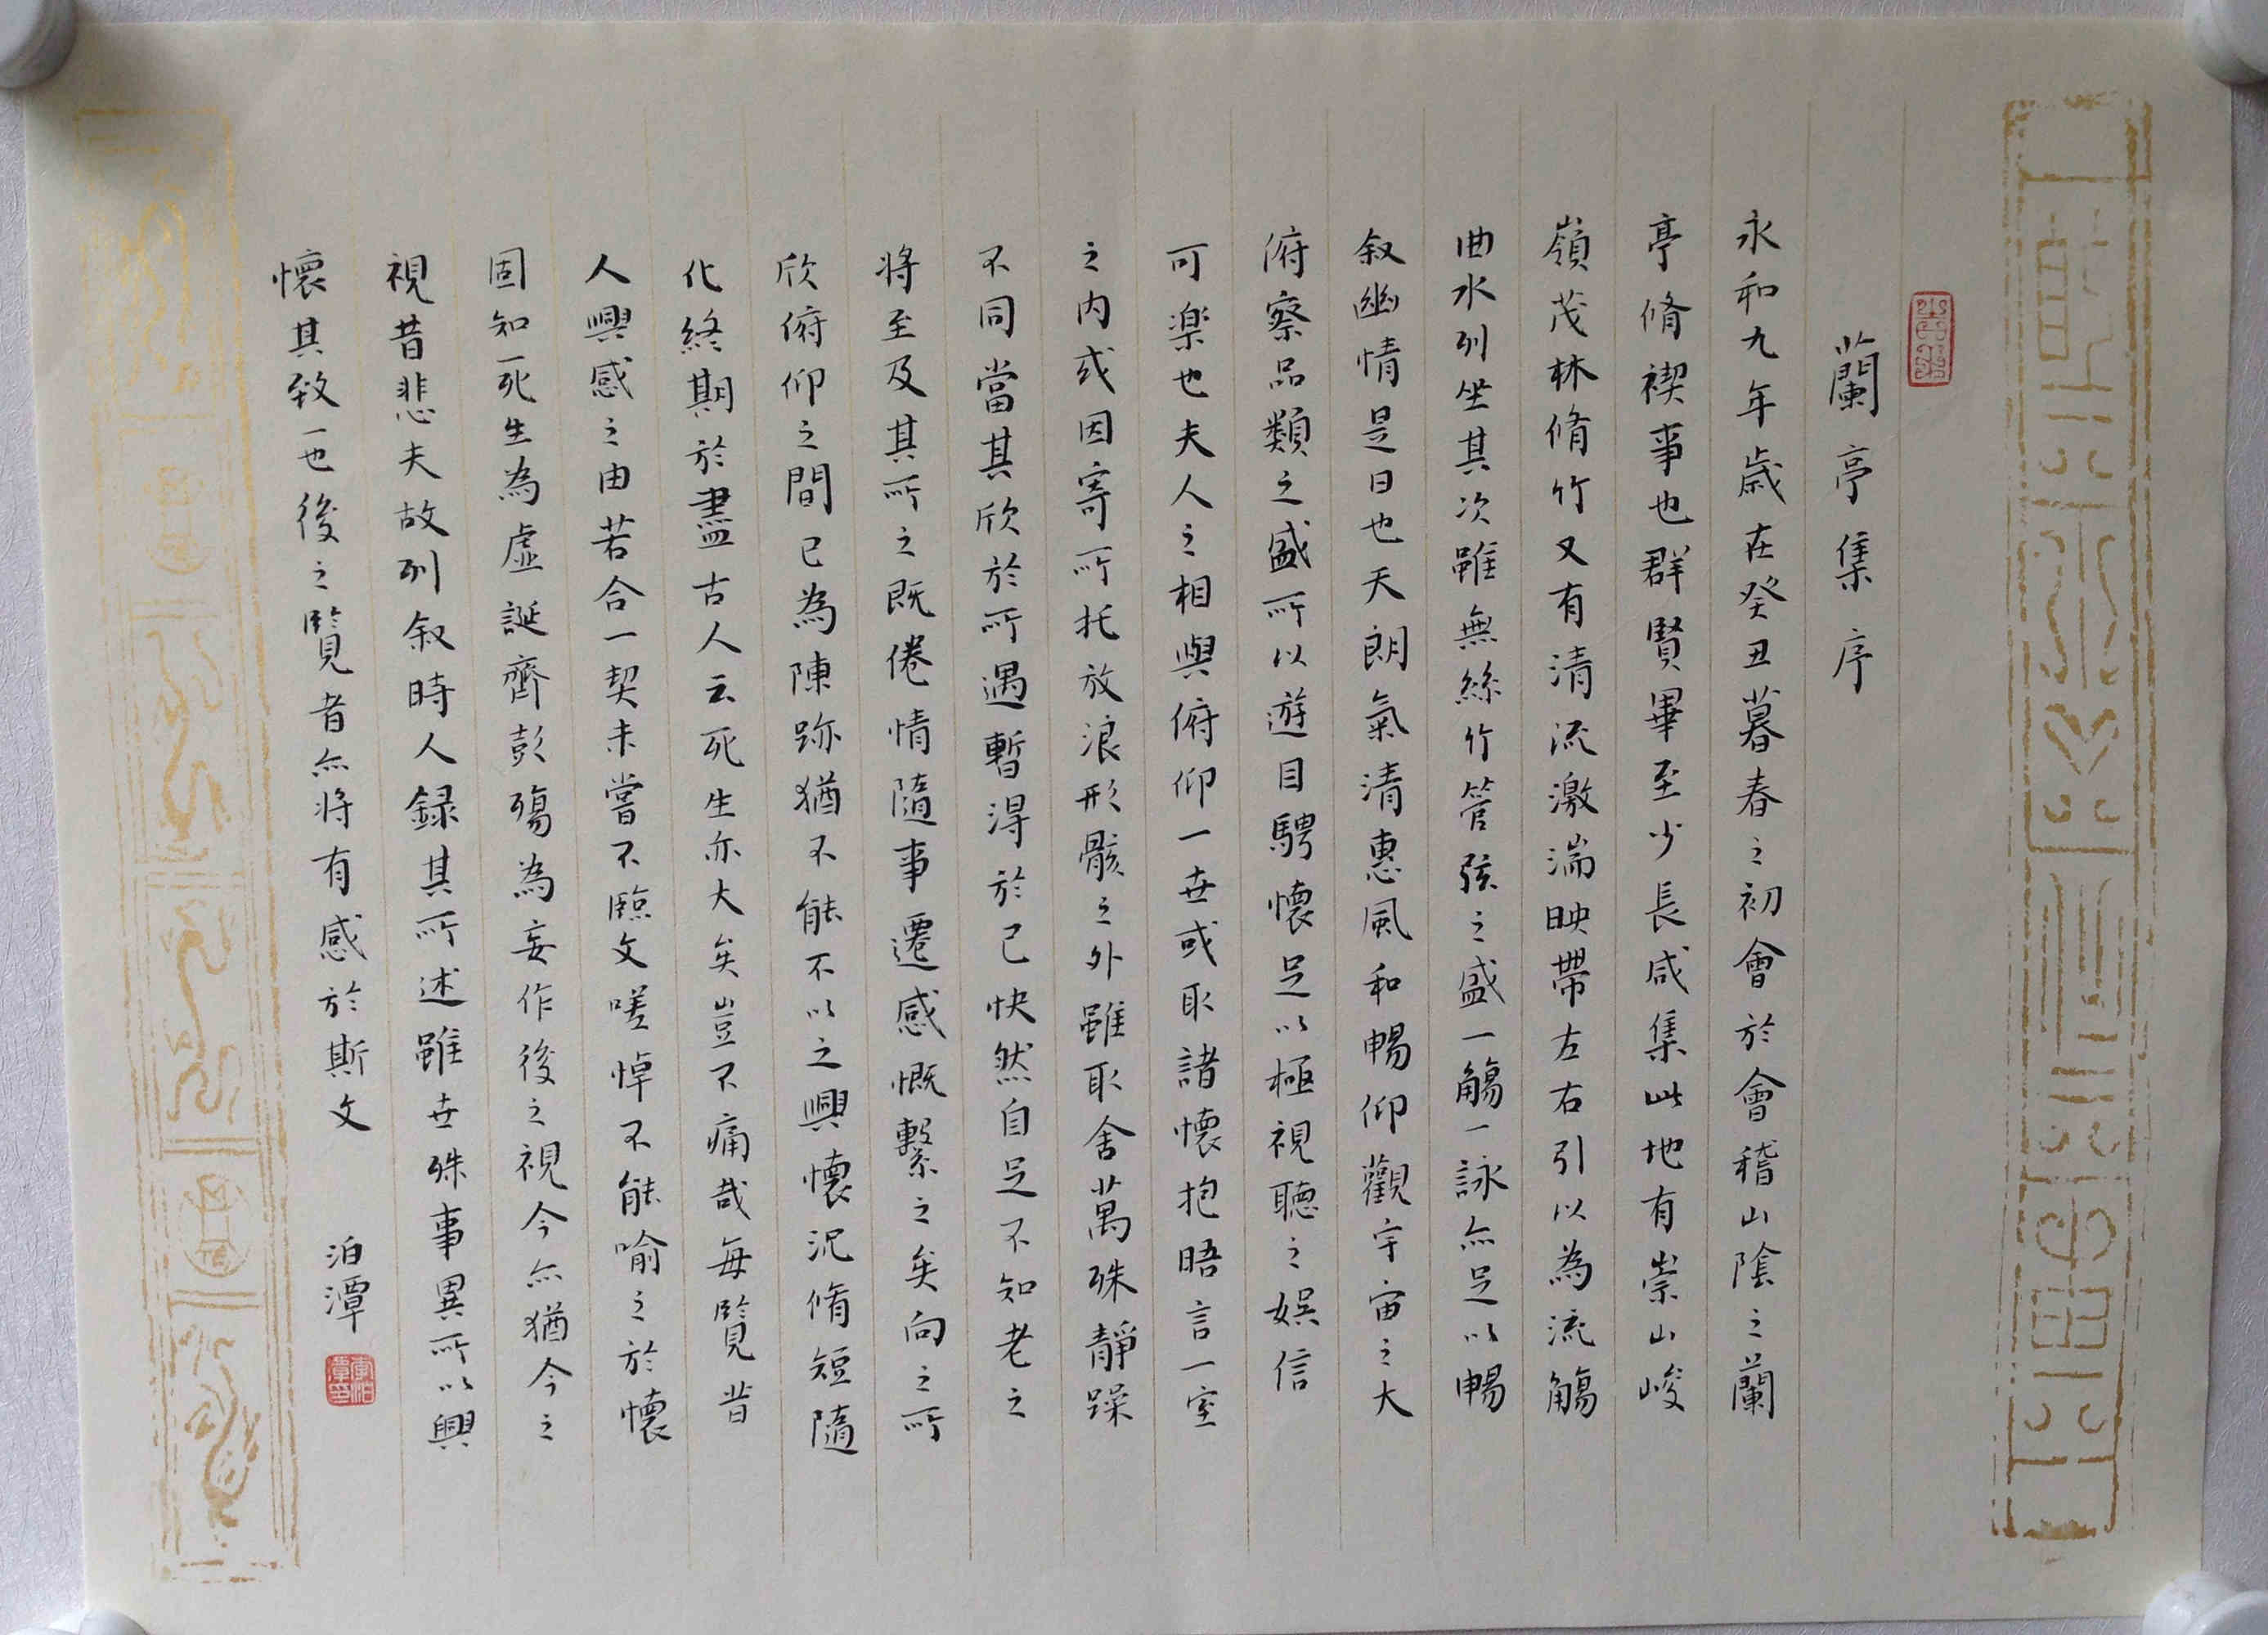 蘭亭集序
永和九年歳在癸丑暮春之初會於會稽山陰之蘭
亭脩禊事也群賢畢至少長咸集此地有崇山峻
嶺茂林脩竹又有清流激湍映帶左右引以為流觴
曲水列坐其次雖無絲竹管弦之盛一觴一詠亦足以暢
叙幽情是日也天朗氣清惠風和暢仰觀宇宙之大
俯察品類之盛所以遊目騁懷足以極視聽之娛信
可楽也夫人之相與俯仰一世或取諸懷抱晤言一室
之内或因寄所托放浪形骸之外雖取舍萬殊靜躁
不同當其欣於所遇暫得於己快然自足不知老之
将至及其所之既倦情隨事遷感慨繫之矣向之所
欣俯仰之間已為陳跡猶不能不以之興懷況脩短隨
化終期於盡古人云死生亦大矣豈不痛哉每覽昔
人興感之由若合一契未嘗不臨文嗟悼不能喻之於懷
固知一死生為虛誕齊彭殤為妄作後之視今亦猶今之
視昔悲夫故列叙時人録其所述雖世殊事異所以興
懷其致一也後之覽者亦将有感於斯文
泊潭
李泊潭印